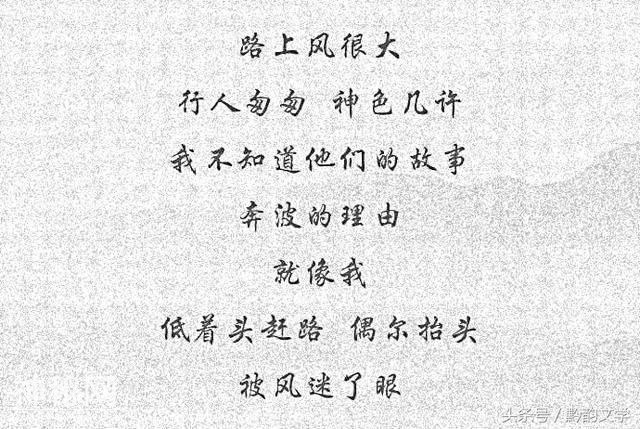 路上风很大
行人匆匆 神色几许
我不知道他们的故事
奔波的理由
就像我
低着头赶路 偶尔抬头
被风迷了眼
头条号/黔韵文学